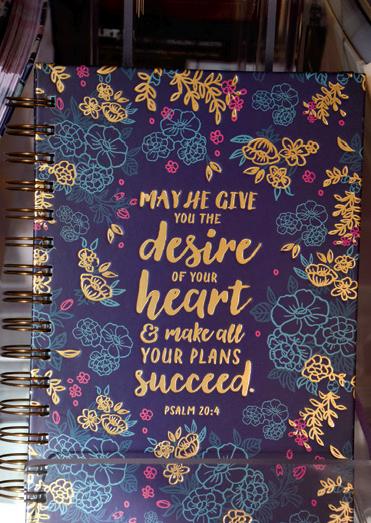 MAY HE GIVE
YOU THE
desire
OF YOUR
heart
& make all
YOUR PLANS
succeed.
PSALM 20:4